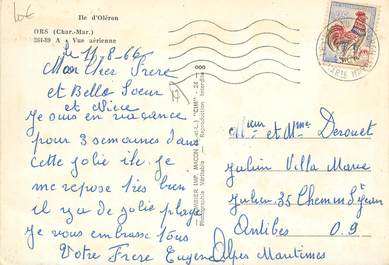 10€
Ile d'Oléron
ORS (Char.-Mar.)
264-89 A - Vue aérienne
le 11-8-66
Mon Cher Frere
et Belle Soeur
et Niece
Je suis en vacance
pour 3 semaines dans
cette jolie ile. je me
repose très bien
il y a de jolie plage
Je vous embrasse tous
Votre Frere Eugene
COMBIER IMP. MACON (S.-et-L.) "CIM"
Photographie Véritable - Reproduction Interdite
et Mme Derouet
Villa Marie
35 Chemin
Antibes 0.9
Alpes Maritimes